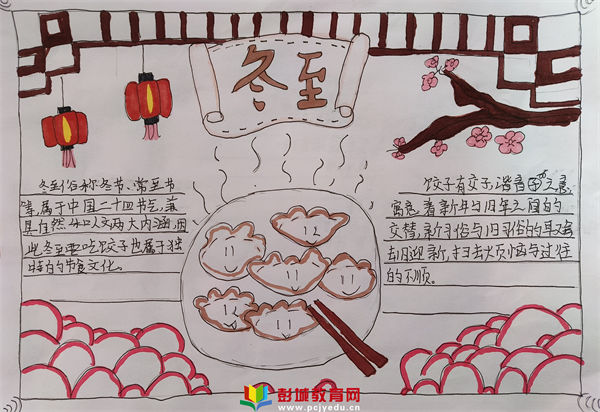 冬至
冬至俗称冬节、常至节
等,属于中国二十四节气,兼
具自然与人文两大内涵,因
此冬至要吃饺子也属于独
特的节食文化。
饺子有交子谐音之意
寓意着新年与旧年之间的
交替,新习俗与旧习俗的
去旧迎新,扫去烦恼与过往
的不顺。
彭城教育网
www.pcjyedu.cn